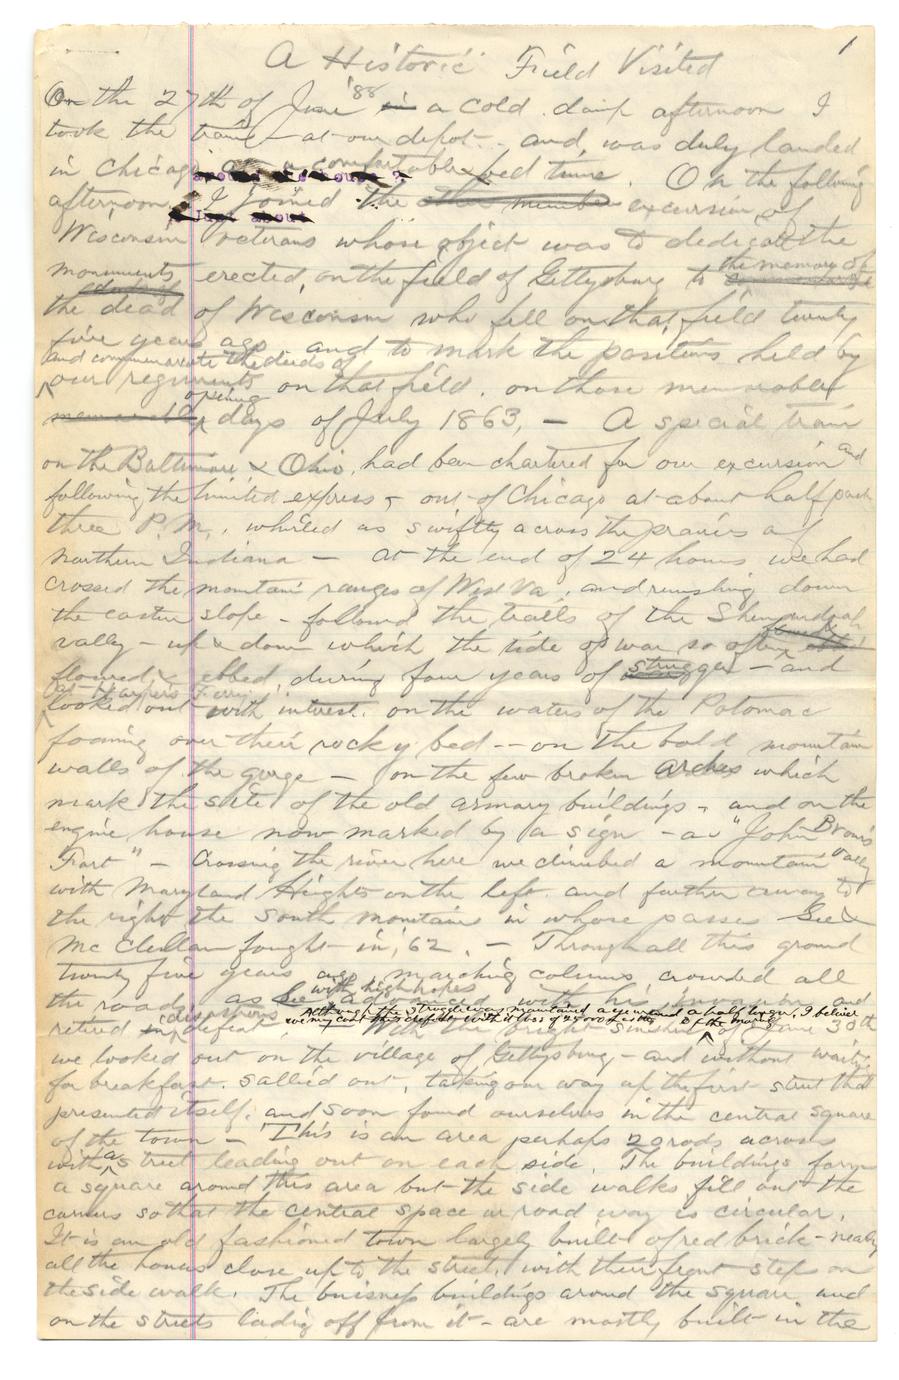 1
A Historic Field Visited
On the 27th of June '88 in a cold damp afternoon I
took the train at our depot and was duly landed
in Chicago at a comfortable bed time. On the following
afternoon I joined the other member excursion of
Wisconsin veterans whose object was to dedicate the
monuments erected, on the field of Gettysburg to the memory of
the dead of Wisconsin who fell on that field twenty
five years ago and to mark the positions held by
and commemorate the deeds of
our regiments on that field. on those memorable
opening
memorable days of July 1863, — A special train
on the Baltimore & Ohio, had been chartered for our excursion and
following the limited express, out of Chicago at about half past
three P.M., whirled as swiftly across the prairies of
northern Indiana — At the end of 24 hours we had
crossed the mountain ranges of West Va, and rushing down
the eastern slope - followed the trails of the Shenandoah
vally - up & down which the tide of war so often
flowed & ebbed, during four years of struggle - and
at Harpers Ferry
looked out with interest. on the waters of the Potomac
foaming over their rocky bed -- on the bold mountain
walls of the gorge — on the few broken arches which
mark the site of the old armory buildings - and on the
engine house now marked by a sign - as "John Browns
Fort" — Crossing the river here we climbed a mountain vally
with Maryland Heights on the left. and farther away to
the right the South Mountain in whose passes Lee &
McClellan fought in, '62. — Through all this ground
twenty five years ago, marching columns crowded all
with high hopes
the roads as Lee advanced with his invasion and
Although the struggle was maintained a year and a half longer, I believe
retired in disastrous defeat With the bright sunshine of the morning of June 30th
we looked out on the village of Gettysburg - and without waiting
for breakfast. sallied out, taking our way up the first street that
presented itself, and soon found ourselves in the central square
of the town — This is an area perhaps 20 rods across
with a street leading out on each side. The buildings form
a square around this area but the side walks fill out the
corners so that the central space or road way is circular.
It is an old fashioned town largely built of red brick - nearly
all the houses close up to the street, with their front steps on
the side walk. The buisness buildings around the square and
on the streets leading off from it - are mostly built in the